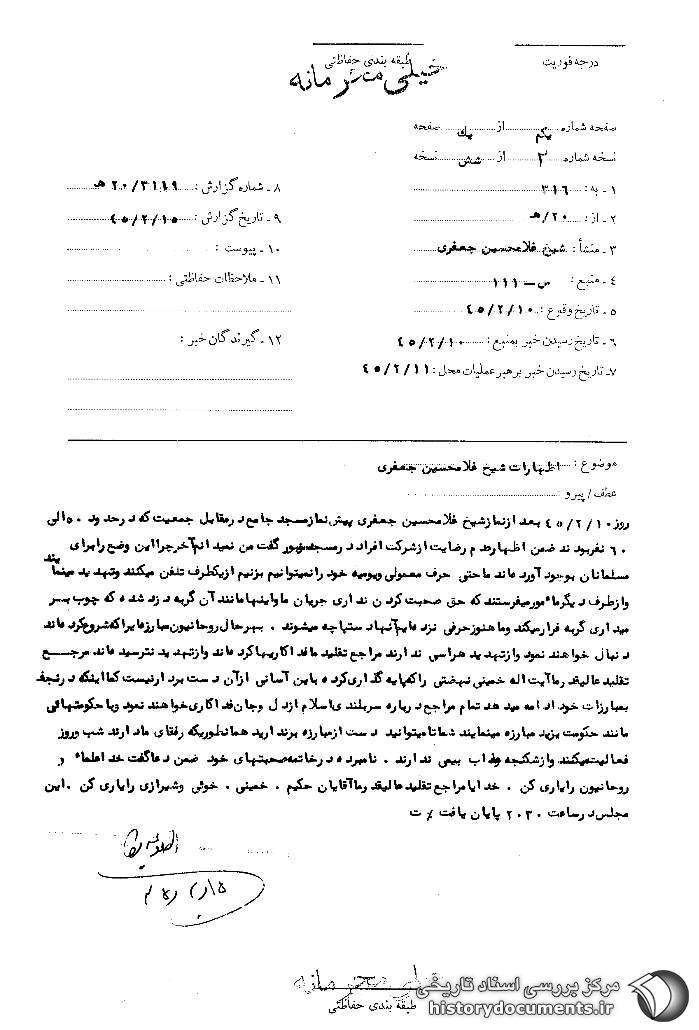 درجه فوریت
طبقه بندی حفاظتی
خیلی محرمانه
صفحه شماره یکم از یک صفحه
نسخه شماره ۲ از شش نسخه
۱ ـ به : ۳۱۶
۲ ـ از : ۲۰/هـ
۳ ـ منشأ : شیخ غلامحسین جعفری
۴ ـ منبع : س ـ ۱۱۱
۵ ـ تاریخ وقوع : ۴۵/۲/۱۰
۶ ـ تاریخ رسیدن خبر بمنبع : ۴۵/۲/۱۰
۷ ـ تاریخ رسیدن خبر برهبر عملیات محل : ۴۵/۲/۱۱
۸ ـ شماره گزارش : ۲۰/۳۱۱۹ هـ
۹ ـ تاریخ گزارش : ۴۵/۲/۱۵
۱۰ ـ پیوست :
۱۱ ـ ملاحظات حفاظتی :
۱۲ ـ گیرندگان خبر :
موضوع : اظهارات شیخ غلامحسین جعفری
عطف / پیرو :
روز ۴۵/۲/۱۰ بعد از نماز شیخ غلامحسین جعفری پیش نماز مسجد جامع در مقابل جمعیت که در حدود ۵۰ الی
۶۰ نفر بودند ضمن اظهار عدم رضایت از شرکت افراد در مسجد مزبور گفت من نمیدانم آخر چرا این وضع را برای
مسلمانان بوجود آورده‌اند ما حتی حرف معمولی ویومیه خود را نمیتوانیم بزنیم از یکطرف تلفن میکنند وتهدید مینمایند
واز طرف دیگر مأمور میفرستند که حق صحبت کردن نداری جریان ما واینها مانند آن گربه دزد شده که چوب بر
میداری گربه فرار میکند وما هنوز حرفی نزده‌ایم آنها دستپاچه میشوند . بهر حال روحانیون مبارزه ایرا که شروع کرده‌اند
دنبال خواهند نمود واز تهدید هراسی ندارند مراجع تقلید ما فداکاریها کرده‌اند واز تهدید نترسیده‌اند مرجع
تقلید عالیقدر ما آیت اله خمینی نهضتی را که پایه گذاری کرده باین آسانی از آن دست بردار نیست کما اینکه در نجف
بمبارزات خود ادامه میدهد تمام مراجع درباره سربلندی اسلام از دل وجان فداکاری خواهند نمود وبا حکومتهائی
مانند حکومت یزید مبارزه مینمایند شما تا میتوانید دست از مبارزه برندارید همانطوریکه رفقای ما دارند شب وروز
فعالیت میکنند واز شکنجه وعذاب بیمی ندارند . نامبرده در خاتمه صحبتهای خود ضمن دعا گفت خدا علماء و
روحانیون را یاری کن . خدایا مراجع تقلید عالیقدر ما آقایان حکیم . خمینی . خوئی وشیرازی را یاری کن . این
مجلس در ساعت ۲۰۳۰ پایان یافت ٪ ت
خیلی محرمانه
طبقه بندی حفاظتی
مرکز بررسی اسناد تاریخی
historydocuments.ir